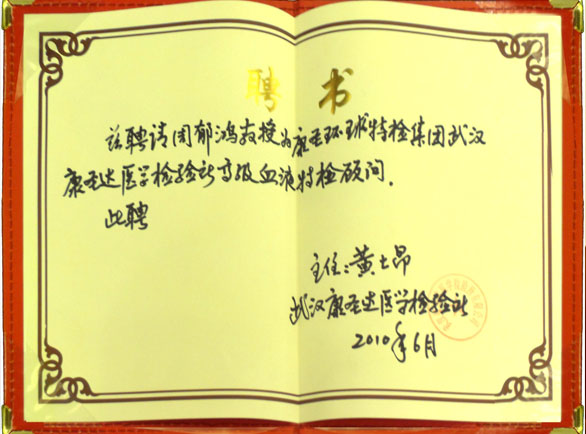 聘 书
兹聘请周郁鸿教授为康圣环球特检集团武汉
康圣达医学检验所高级血液特检顾问。
此聘
主任：黄士昂
武汉康圣达医学检验所
2010年6月